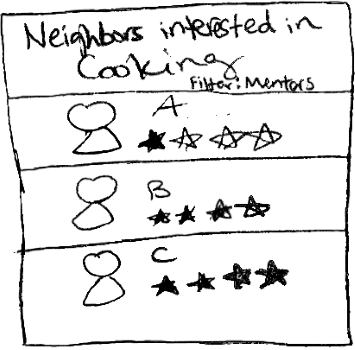 Neighbors interested in
Cooking
Filter: Mentors
A
B
C